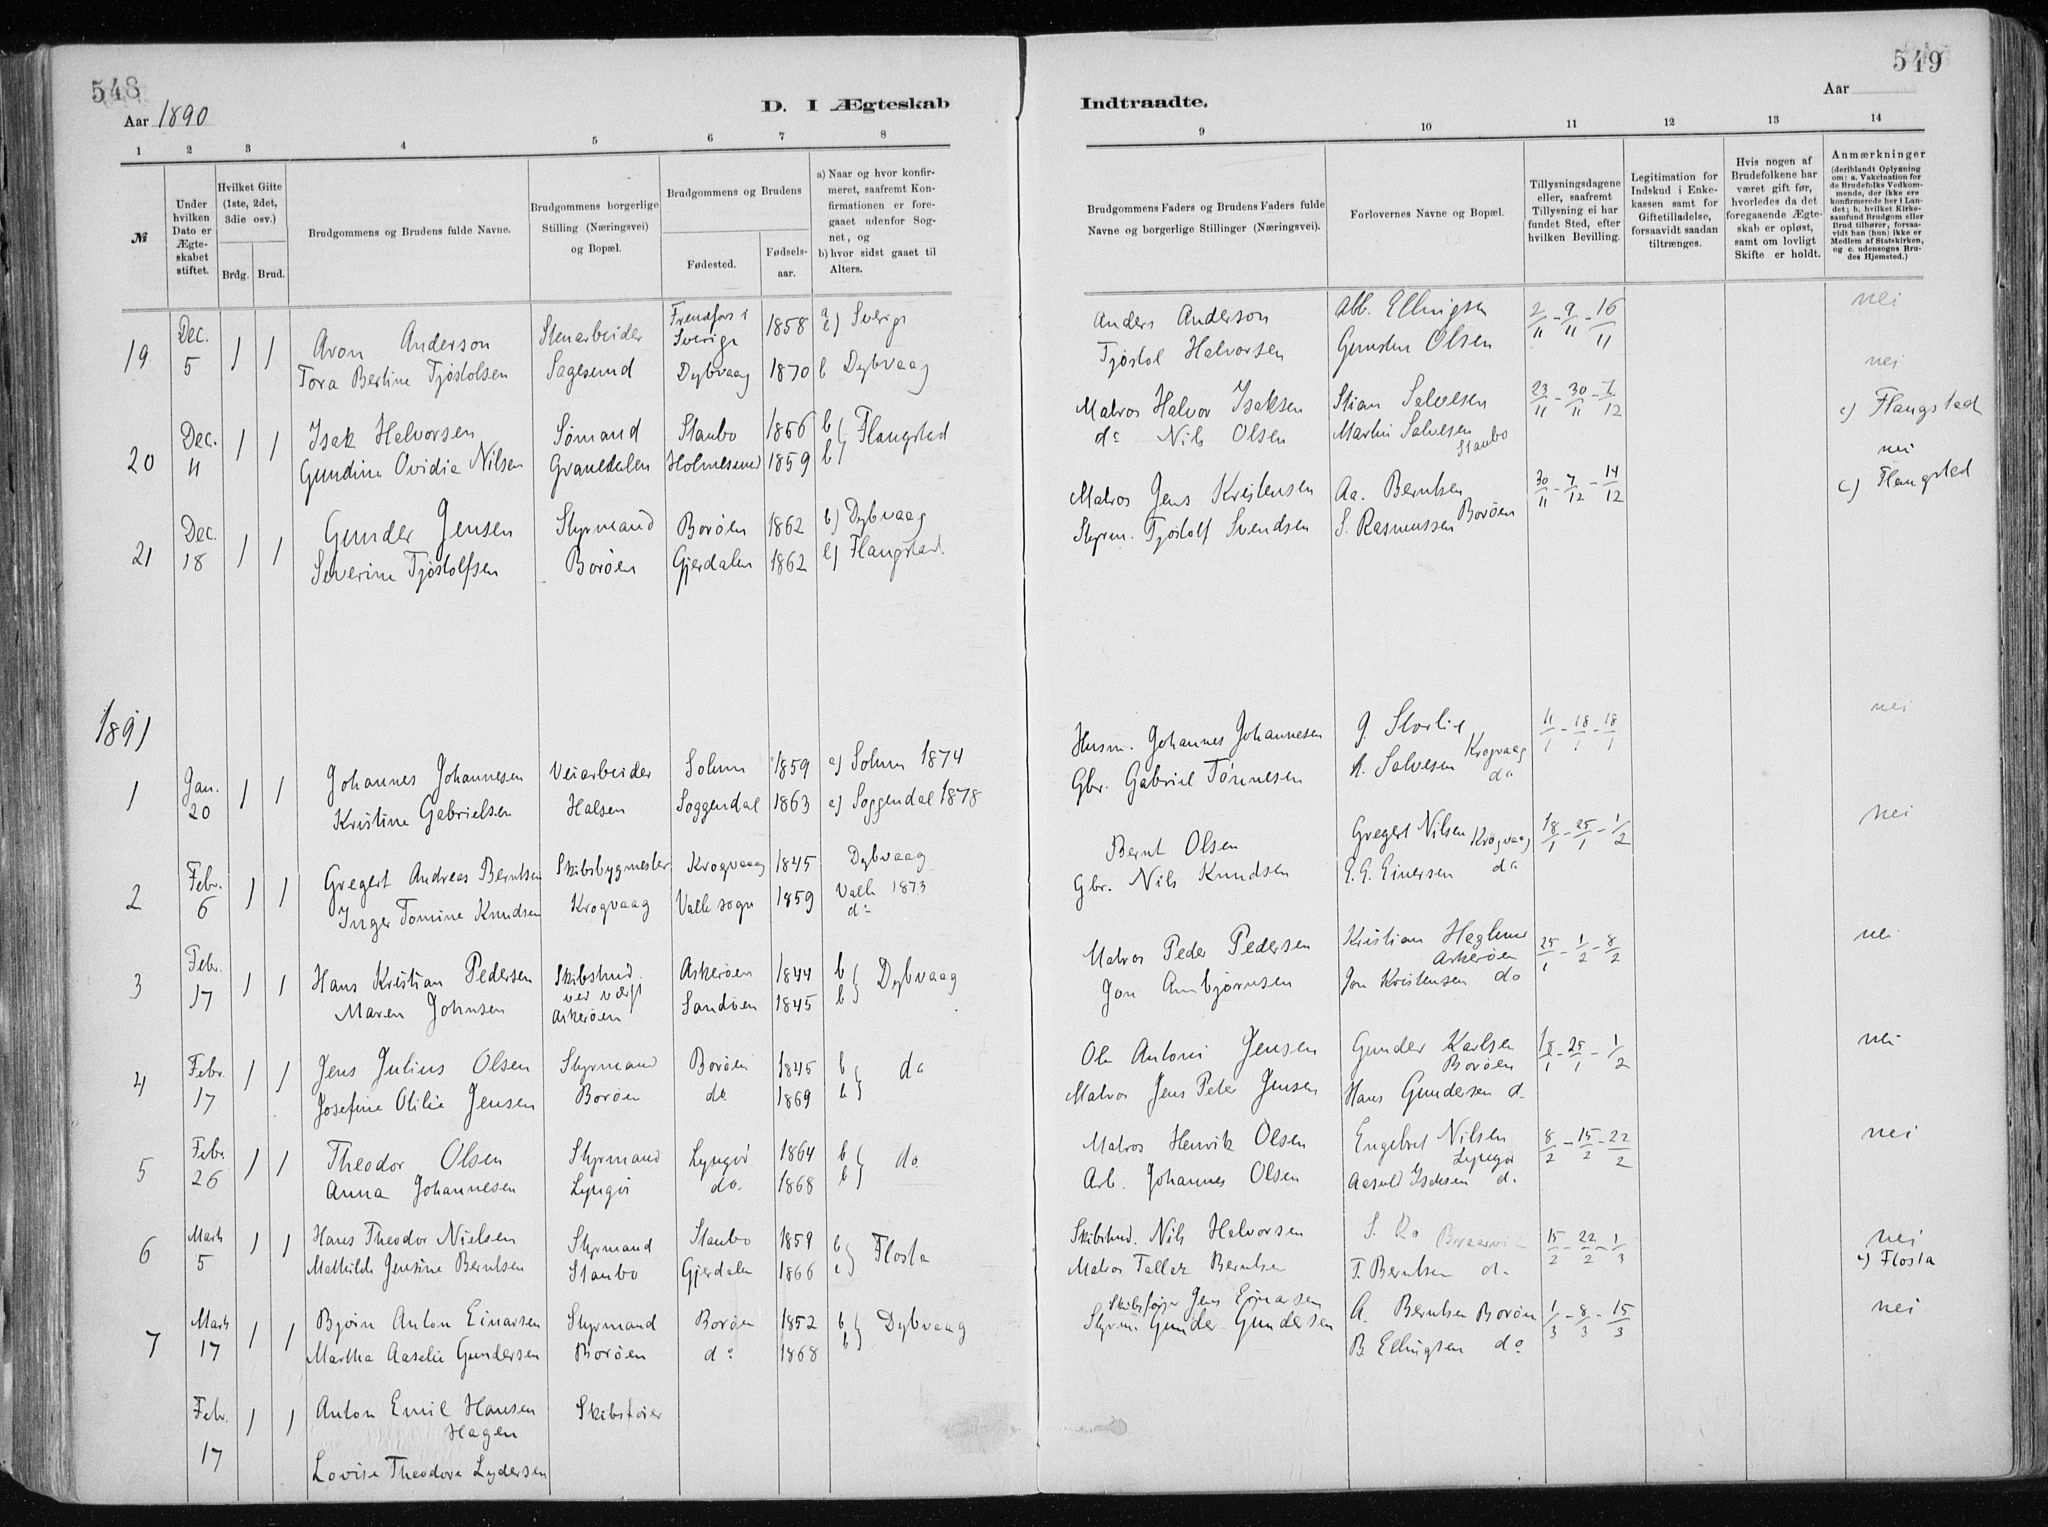 548
Aar 1890
D. I Ægteskab
1 2 3 4 5 6 7 8
№
Under hvilken Dato er Ægteskabet stiftet.
Hvilket Gifte (1ste, 2det, 3die osv.)
Brdg. Brud.
Brudgommens og Brudens fulde Navne.
Brudgommens borgerlige Stilling (Næringsvei) og Bopæl.
Brudgommens og Brudens
Fødested.
Fødselsaar.
a) Naar og hvor konfirmeret, saafremt Konfirmationen er foregaaet udenfor Sognet, og
b) hvor sidst gaaet til Alters.
19 Dec. 5 1 1
Aron Anderson Stenarbeider Sverige 1858 a) Sverige
Tora Bertine Tjøstolsen Sagesund Dybvaag 1870 b Dybvaag
20 Dec. 11 1 1
Isak Halvorsen Sømand Staubo 1856 b) Flangstad
Gundine Ovidia Nilsen Granedalen Holmesund 1859 b)
21 Dec. 18 1 1
Gunder Jensen Styrmand Borøen 1862 b) Dybvaag
Severine Tjøstolfsen Borøen Gjerdalen 1862 b) Flangstad.
1891
1 Jan. 20 1 1
Johannes Johannesen Veiarbeider Solum 1859 a) Solum 1874
Kristine Gabrielsen Halsen Soggendal 1863 a) Soggendal 1878
2 Febr. 6 1 1
Gregert Andreas Berntsen Skibsbygmester Krogvaag 1845 Dybvaag
Inger Tomine Knudsen Krogvaag Valle sogn 1859 Valle 1873
do
3 Febr. 17 1 1
Hans Kristian Pedersen Skibstmd. Askerøen 1844 b) Dybvaag
ved værft
Maren Johnsen Askerøen Sandøen 1845 b)
4 Febr. 17 1 1
Jens Julius Olsen Styrmand Borøen 1845 b) do
Josefine Otilie Jensen Borøen do. 1869 b)
5 Febr. 26 1 1
Theodor Olsen Styrmand Lyngør 1864 b) do
Anna Johannesen Lyngør do. 1868 b)
6 Marts 5 1 1
Hans Theodor Nielsen Styrmand Staubo 1859 b) Flosta
Mathilde Jensine Berntsen Staubo Gjerdalen 1866
7 Marts 17 1 1
Bjørn Anton Einarsen Styrmand Borøen 1852 b) Dybvaag
Martha Aaselie Gundersen Borøen do 1868 b)
Febr. 17 1 1
Anton Emil Hansen Skibsfører
Hagen
Lovise Theodora Lydersen
549
Indtraadte.
Aar
9 10 11 12 13 14
Brudgommens Faders og Brudens Faders fulde Navne og borgerlige Stillinger (Næringsvei).
Forlovernes Navne og Bopæl.
Tillysningsdagene eller, saafremt Tillysning ei har fundet Sted, efter hvilken Bevilling.
Legitimation for Indskud i Enkekassen samt for Giftetilladelse, forsaavidt saadan tiltrænges.
Hvis nogen af Brudefolkene har været gift før, hvorledes da det foregaaende Ægteskab er opløst, samt om lovligt Skifte er holdt.
Anmærkninger
(deriblandt Oplysning om: a. Vakcination for de Brudefolks Vedkommende, der ikke ere konfirmerede her i Landet; b. hvilket Kirkesamfund Brudgom eller Brud tilhører, forsaavidt han (hun) ikke er Medlem af Statskirken, og c. udensogns Brudes Hjemsted.)
Anders Anderson Abb. Ellingsen 2/11 - 9/11 - 16/11 nei
Tjøstol Halvorsen Gunsten Olsen nei
Matros Halvor Isaksen Stian Salvesen 23/11 - 30/11 - 7/12 c) Flangstad
do Nils Olsen Martin Salvesen
Staubo nei
Matros Jens Kristensen Aa. Berntsen 30/11 - 7/12 - 14/12 c) Flangstad
Styrm. Tjøstolf Svendsen S. Rasmussen Borøen
Husm. Johannes Johannesen G. Storlie 11/1 - 18/1 - 18/1 nei
Krogvaag
Gbr. Gabriel Tønnesen A. Salvesen do
Bernt Olsen Gregert Nilsen Krogvaag 18/1 - 25/1 - 1/2 nei
Gbr. Nils Knudsen E. G. Einersen do
Matros Peder Pedersen Kristian Heglund 25/1 - 1/2 - 8/2 nei
Askerøen
Jon Annbjørnsen Jon Kristensen do
Ole Antoni Jensen Gunder Karlsen 18/1 - 25/1 - 1/2 nei
Borøen
Matros Jens Peter Jensen Hans Gundersen do
Matros Henrik Olsen Engebret Nilsen 8/2 - 15/2 - 22/2 nei
Lyngør
Arb. Johannes Olsen Aasuld Isaksen do
Skibstmd. Nils Halvorsen 15/2 - 22/2 - 1/3 nei
Matros Tallak Berntsen T. Berntsen do c) Flosta
Skibsfører Jens Einarsen A. Berntsen Borøen 1/3 - 8/3 - 15/3 nei
Styrm. Gunder Gundersen
B. Ellingsen do